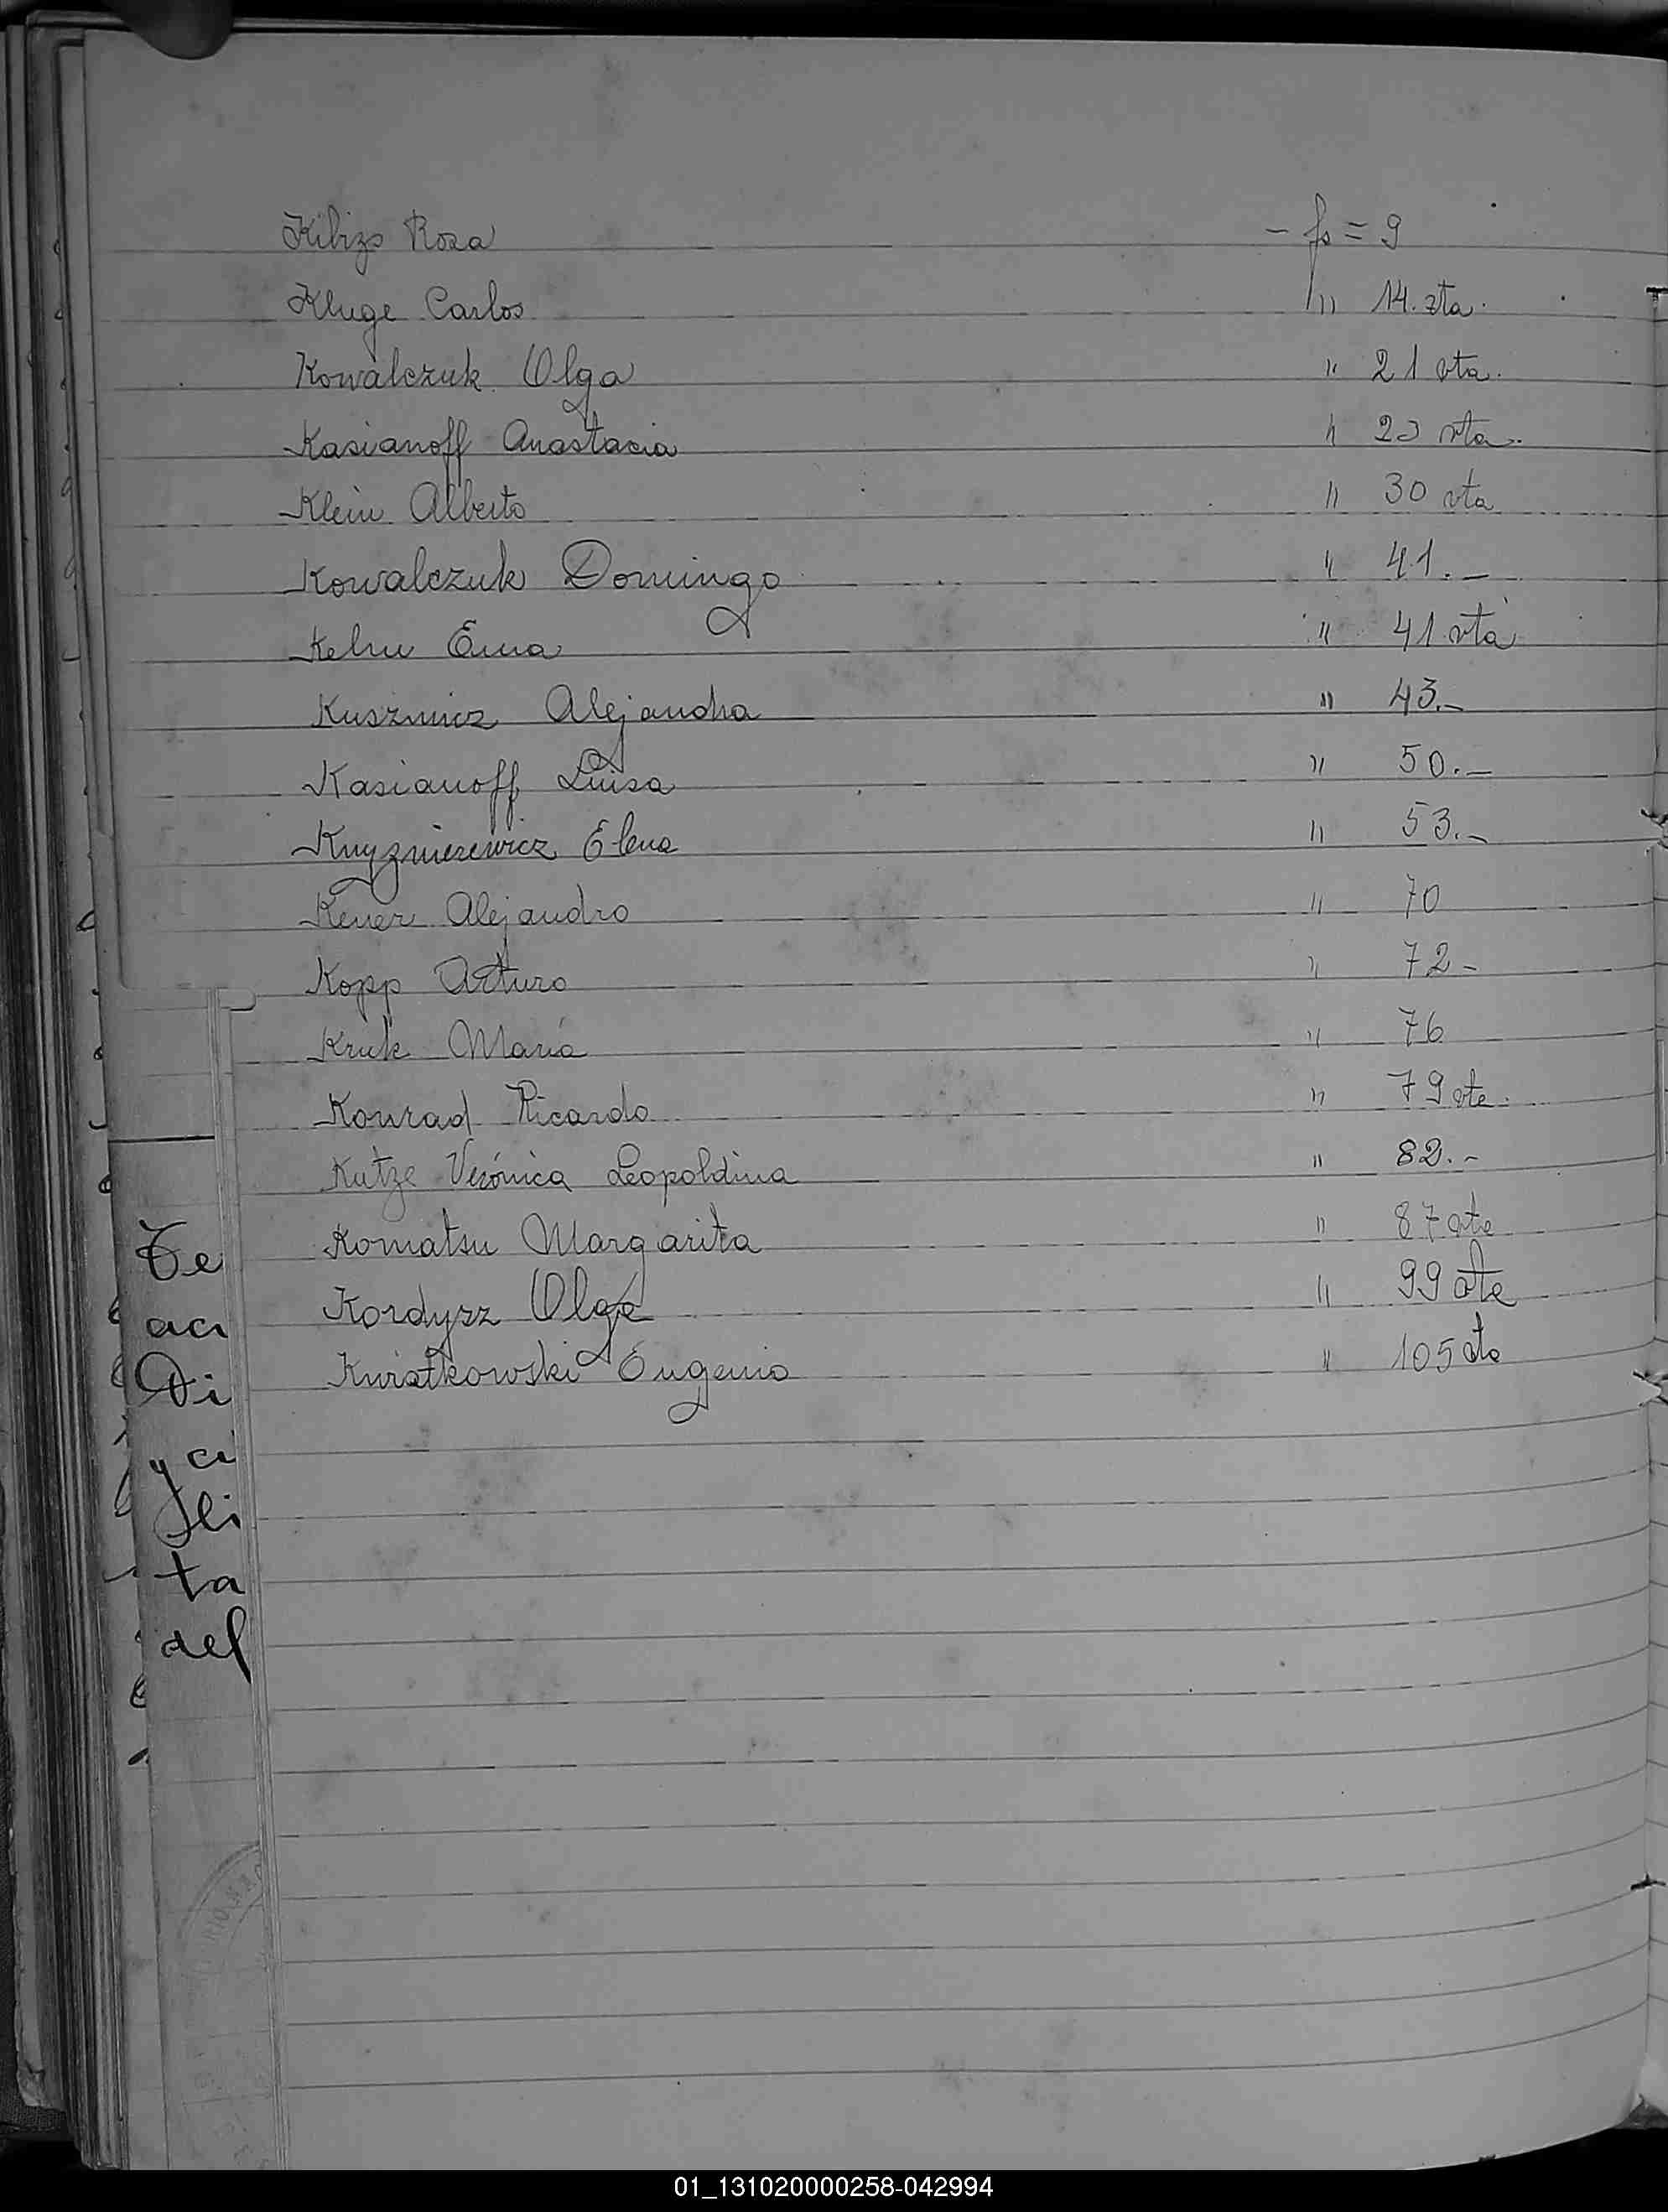 Kibizs Rosa - fs = 9
Kluge Carlos " 14. vta.
Kowalczuk Olga " 21 vta.
Kasianoff Anastacia " 23 vta.
Klein Alberto " 30 vta
Kowalczuk Domingo " 41.-
Kelm Erna " 41 vta
Kuszmicz Alejandra " 43.-
Kasianoff Luisa " 50.-
Elena " 53.-
Kener Alejandro " 70
Kopp Arturo " 72-
Kruk María " 76
Konrad Ricardo " 79 vta.
Kutze Verónica Leopoldina " 82.-
Komatsu Margarita " 87 vta
Kordysz Olga " 99 vta
Kwiatkowski Eugenio " 105 vta
Te
aci
Di
y ci
ta
del
01_131020000258-042994